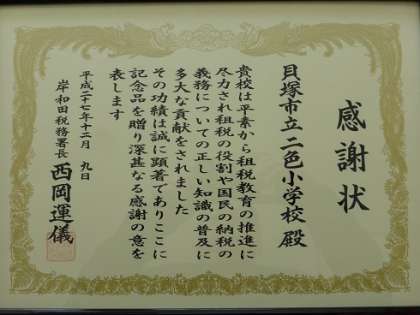 感謝状
貝塚市立二色小学校殿
貴校は平素から租税教育の推進に
尽力され租税の役割や国民の納税の
義務についての正しい知識の普及に
多大な貢献をされました
その功績は誠に顕著でありここに
記念品を贈り深甚なる感謝の意を
表します
平成二十七年十二月 九日
岸和田税務署長 西岡運儀